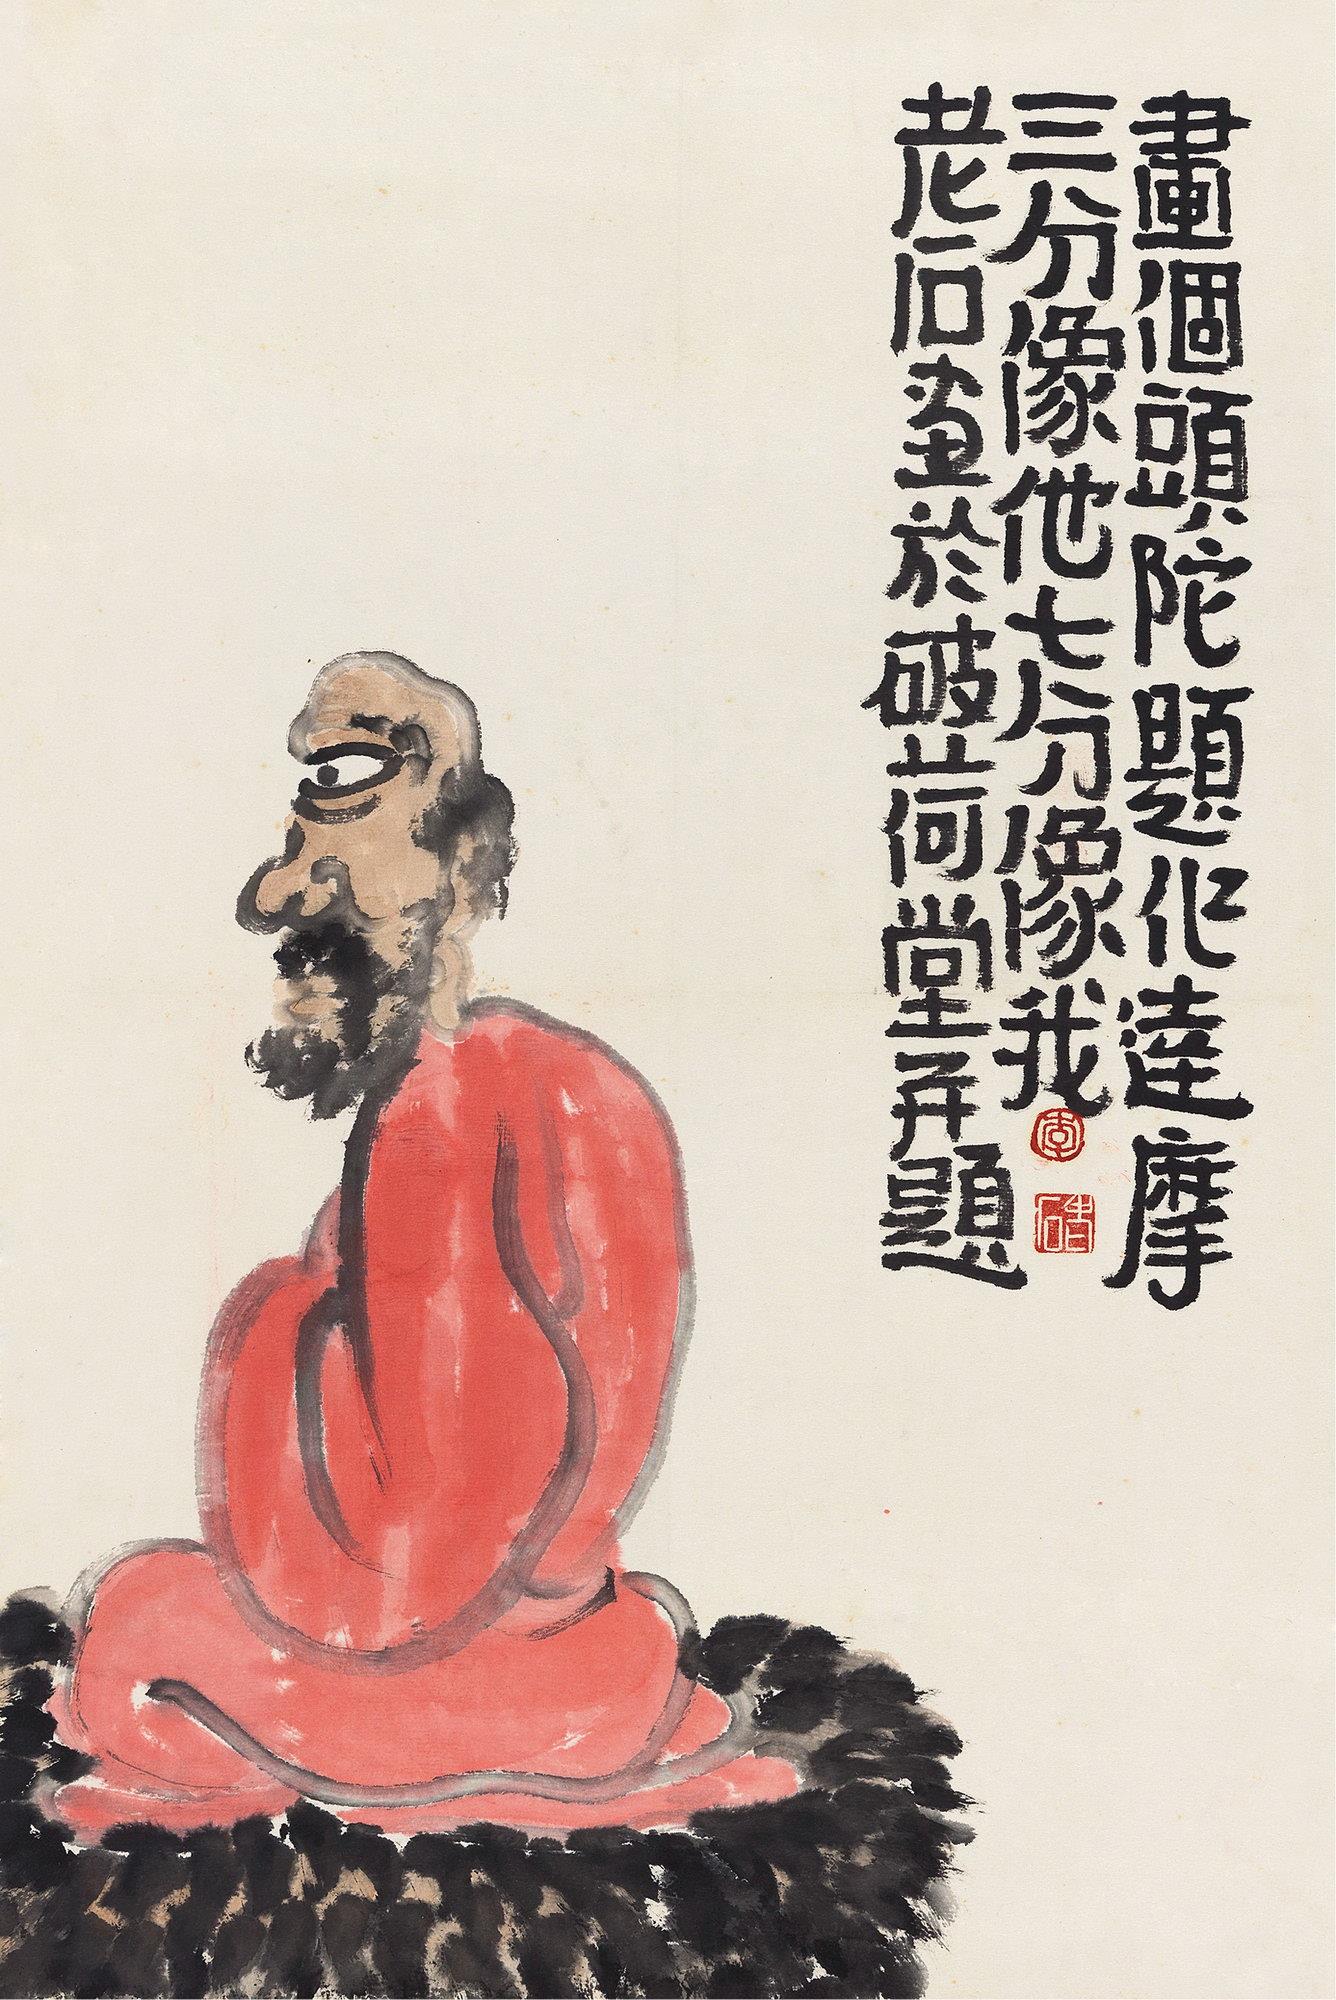 畫個頭陀題作達摩
三分像他七分像我
老石畫於破荷堂并題
李
老石